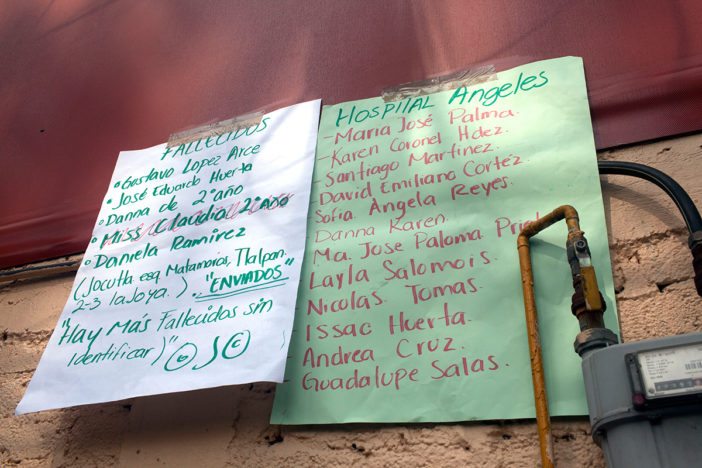 FALLECIDOS
Gustavo Lopez Arce
José Eduardo Huerta
Danna de 2° año
Miss Claudia 2° año
Daniela Ramirez
(Jocutla esq Matamoros, Tlalpan.
2-3 la Joya.) "ENVIADOS"
"Hay Más Fallecidos sin
Identificar)"
HOSPITAL Ángeles
- María José Palma.
- Karen Coronel Hdez.
- Santiago Martínez.
- David Emiliano Cortéz
Sofia Ángela Reyes.
Danna Karen.
Ma. Jose Paloma
Layla Salomois.
Nicolas Tomas.
Issac Huerta.
Andrea Cruz.
Guadalupe Salas.